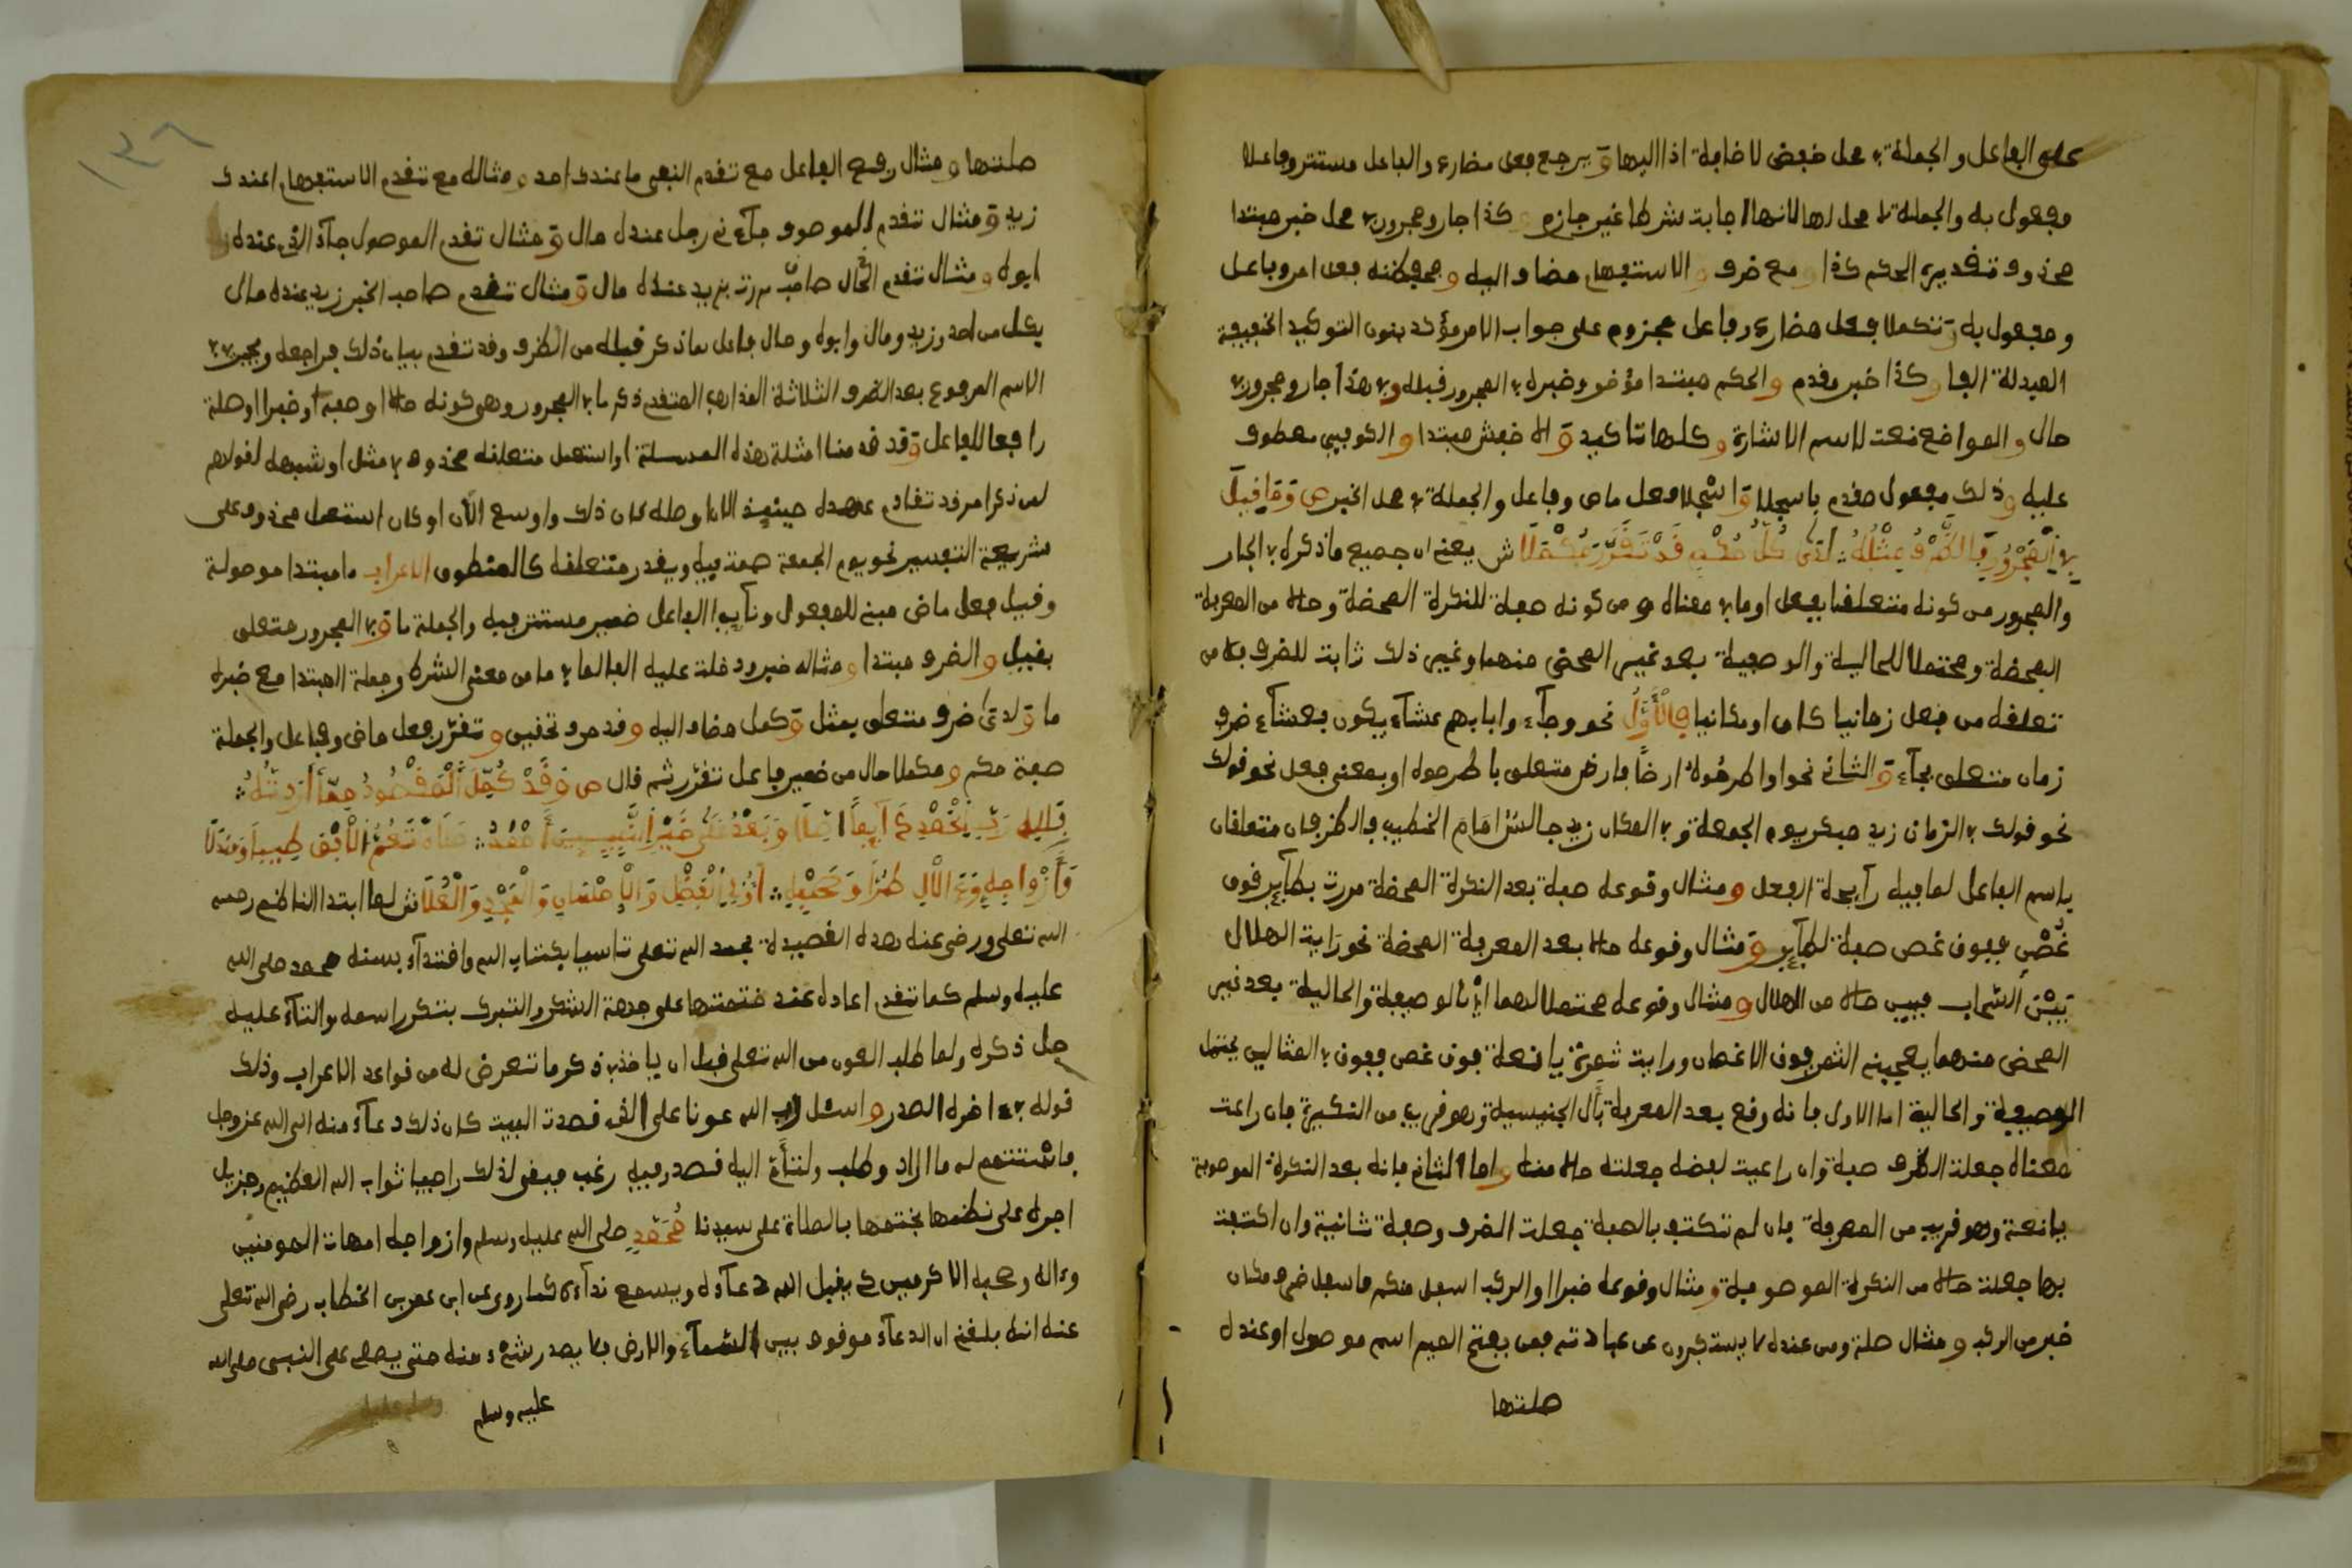 على الفاعل والجملة في محل خفض لاضافة اذا اليها ويرجع فعل مضارع والفاعل مستتر وفاعلا
مفعول به والجملة لا محل لها لانها اجابت شرطا غير جازم وكذا جار ومجرور في محل خبر مبتدا
محذوف تقديره الحكم كذا ومع ظرف والاستفهام مضاف اليه ومحفظنه فعل امر وفاعل
ومفعول به وتكملا فعل مضارع وفاعل مجزوم على جواب الامر مؤكد بنون التوكيد الخفيفة
المبدلة الفا وكذا خبر مقدم والحكم مبتدا مؤخر وخبره في المجرور قبله وفي هذا جار ومجرور في
حال والمواضع نعت لاسم الاشارة وكلها تاكيد والاخفش مبتدا والكوفيين معطوف
عليه وذلك مفعول مقدم باسجلا واسجلا فعل ماض وفاعل والجملة في محل الخبر ص وما قيل
في المجرور فالظرف مثله لدى كل حكم قد تقرر مكملا ش يعني ان جميع ما ذكره في الجار
والمجرور من كونه متعلقا بفعل او ما في معناه ومن كونه صفة للنكرة المحضة وحالا من المعرفة
المحضة ومحتملا للحالية والوصفية بعد غير المحض منهما وغير ذلك ثابت للظرف فلا بد من
تعلقه من فعل زمانيا كان او مكانيا فالأول نحو وجآءو اباهم عشآء يبكون فعشآء ظرف
زمان متعلق بجآء والثاني نحو او اطرحوه ارضا فارض متعلق باطرحوه او بمعنى فعل نحو قولك
نحو قولك في الزمان زيد مبكر يوم الجمعة وفي المكان زيد جالس امام الخطيب فالظرفان متعلقان
باسم الفاعل لما فيه رايحة الفعل ومثال وقوعه صفة بعد النكرة المحضة مررت بطآير فوق
غصن ففوق غصن صفة لطآير ومثال وقوعه حالا بعد المعرفة المحضة نحو رايت الهلال
بين السحاب فبين حالا من الهلال ومثال وقوعه محتملا لهما اي الوصفية والحالية بعد غير
المحض منهما يعجبني الثمر فوق الاغصان ورايت ثمرة يانعة فوق غصن ففوق في المثالين يحتمل
الوصفية والحالية اما الاول فانه وقع بعد المعرفة بأل الجنسية وهو قريب من النكرة فان راعيت
معناه جعلت الظرف صفة وان راعيت لفظه جعلته حالا منه واما الثاني فانه بعد النكرة الموصوفة
يانعة وهو قريب من المعرفة فان لم تكتف بالصفة جعلت الظرف وصفة ثانية وان اكتفيت
بها جعلته حالا من النكرة الموصوفة ومثال وقوعه خبرا والركب اسفل منكم فاسفل ظرف مكان
خبر من الركب ومثال صلة ومن عنده لا يستكبرون عن عبادته فمن بفتح الميم اسم موصول وعنده
صلتها
صلتها ومثال رفع الفاعل مع تقدم النفي ما عندك احد ومثاله مع تقدم الاستفهام اعندك
زيد ومثال تقدم الموصوف جآءني رجل عنده مال ومثال تقدم الموصول جآء الذي عنده
ابوه ومثال تقدم الحال صاحب مررت بزيد عنده مال ومثال تقدم صاحب الخبر زيد عنده مال
فكل من احد وزيد ومال وابوه ومال فاعل بما ذكر قبله من الظرف وقد تقدم بيان ذلك فراجعه ويجوز في
الاسم المرفوع بعد الظرف الثلاثة المذاهب المتقدم ذكرها في المجرور وهو كونه حالا او صفة او خبرا او صلة
رافعا للفاعل وقد قدمنا امثلة هذه المسئلة او استعمل متعلقه محذوف في مثل او شبهه لقولهم
لمن ذكر امر قد تقادم عهده حينئذ الان اصله كان ذلك واوسع الآن او كان استعمل محذوف على
شريطة التفسير نحو يوم الجمعة صمت فيه ويقدر متعلقه كالمنطوق الاعراب ما مبتدا موصولة
وقيل فعل ماض مبني للمفعول ونآيب الفاعل ضمير مستتر فيه والجملة ما وفي المجرور متعلق
بقيل والظرف مبتدا ومثاله خبر ودخلت عليه الفا لما في ما من معنى الشرط وجملة المبتدا مع خبره
ما ولدى ظرف متعلق بمثل وكل مضاف اليه وقد حرف تحقيق وتقرر فعل ماض وفاعل والجملة
صفة حكم ومكملا حال من ضمير فاعل تقرر ثم قال ص وقد كمل المقصود مما أردته
فلله ربي الحمد ايضا اصلا وبعد على خير النبيين احمد صلاة تعم الافق طيبا ومندلا
وأزواجه والآل طرا وصحبه أولي الفضل والاحسان والمجد والعلا ش لما ابتدا الناظم رحمه
الله تعلى ورضي عنه هذه القصيدة بحمد الله تعلى تاسيا بكتاب الله واقتدآء بسنة محمد صلى الله
عليه وسلم كما تقدم اعاده عند ختمتها على جهة الشكر والتبرك بتكرر اسمه والثنآء عليه
جل ذكره ولما طلب العون من الله تعلى قبل ان ياخذ في ذكر ما تعرض له من قواعد الاعراب وذلك
قوله في اخره الصدر واسئل الله عونا على الذي قصدت البيت كان ذلك دعآء منه الى الله عز وجل
فاستتم له ما اراد وطلب ولتأتي اليه قصد وفيه رغب فيقول ذلك راجيا ثواب الله العظيم وجزيل
اجره على نظمها بختمها بالصلاة على سيدنا محمد صلى الله عليه وسلم وازواجه امهات المومنين
وءاله وصحبه الاكرمين كي يقبل الله دعآءه ويسمع ندآءه كما روي عن ابن عمر بن الخطاب رضي الله تعلى
عنه انه بلغني ان الدعآء موقوف بين السمآء والارض فلا يصعد شيء منه حتى يصلى على النبي صلى الله
عليه وسلم